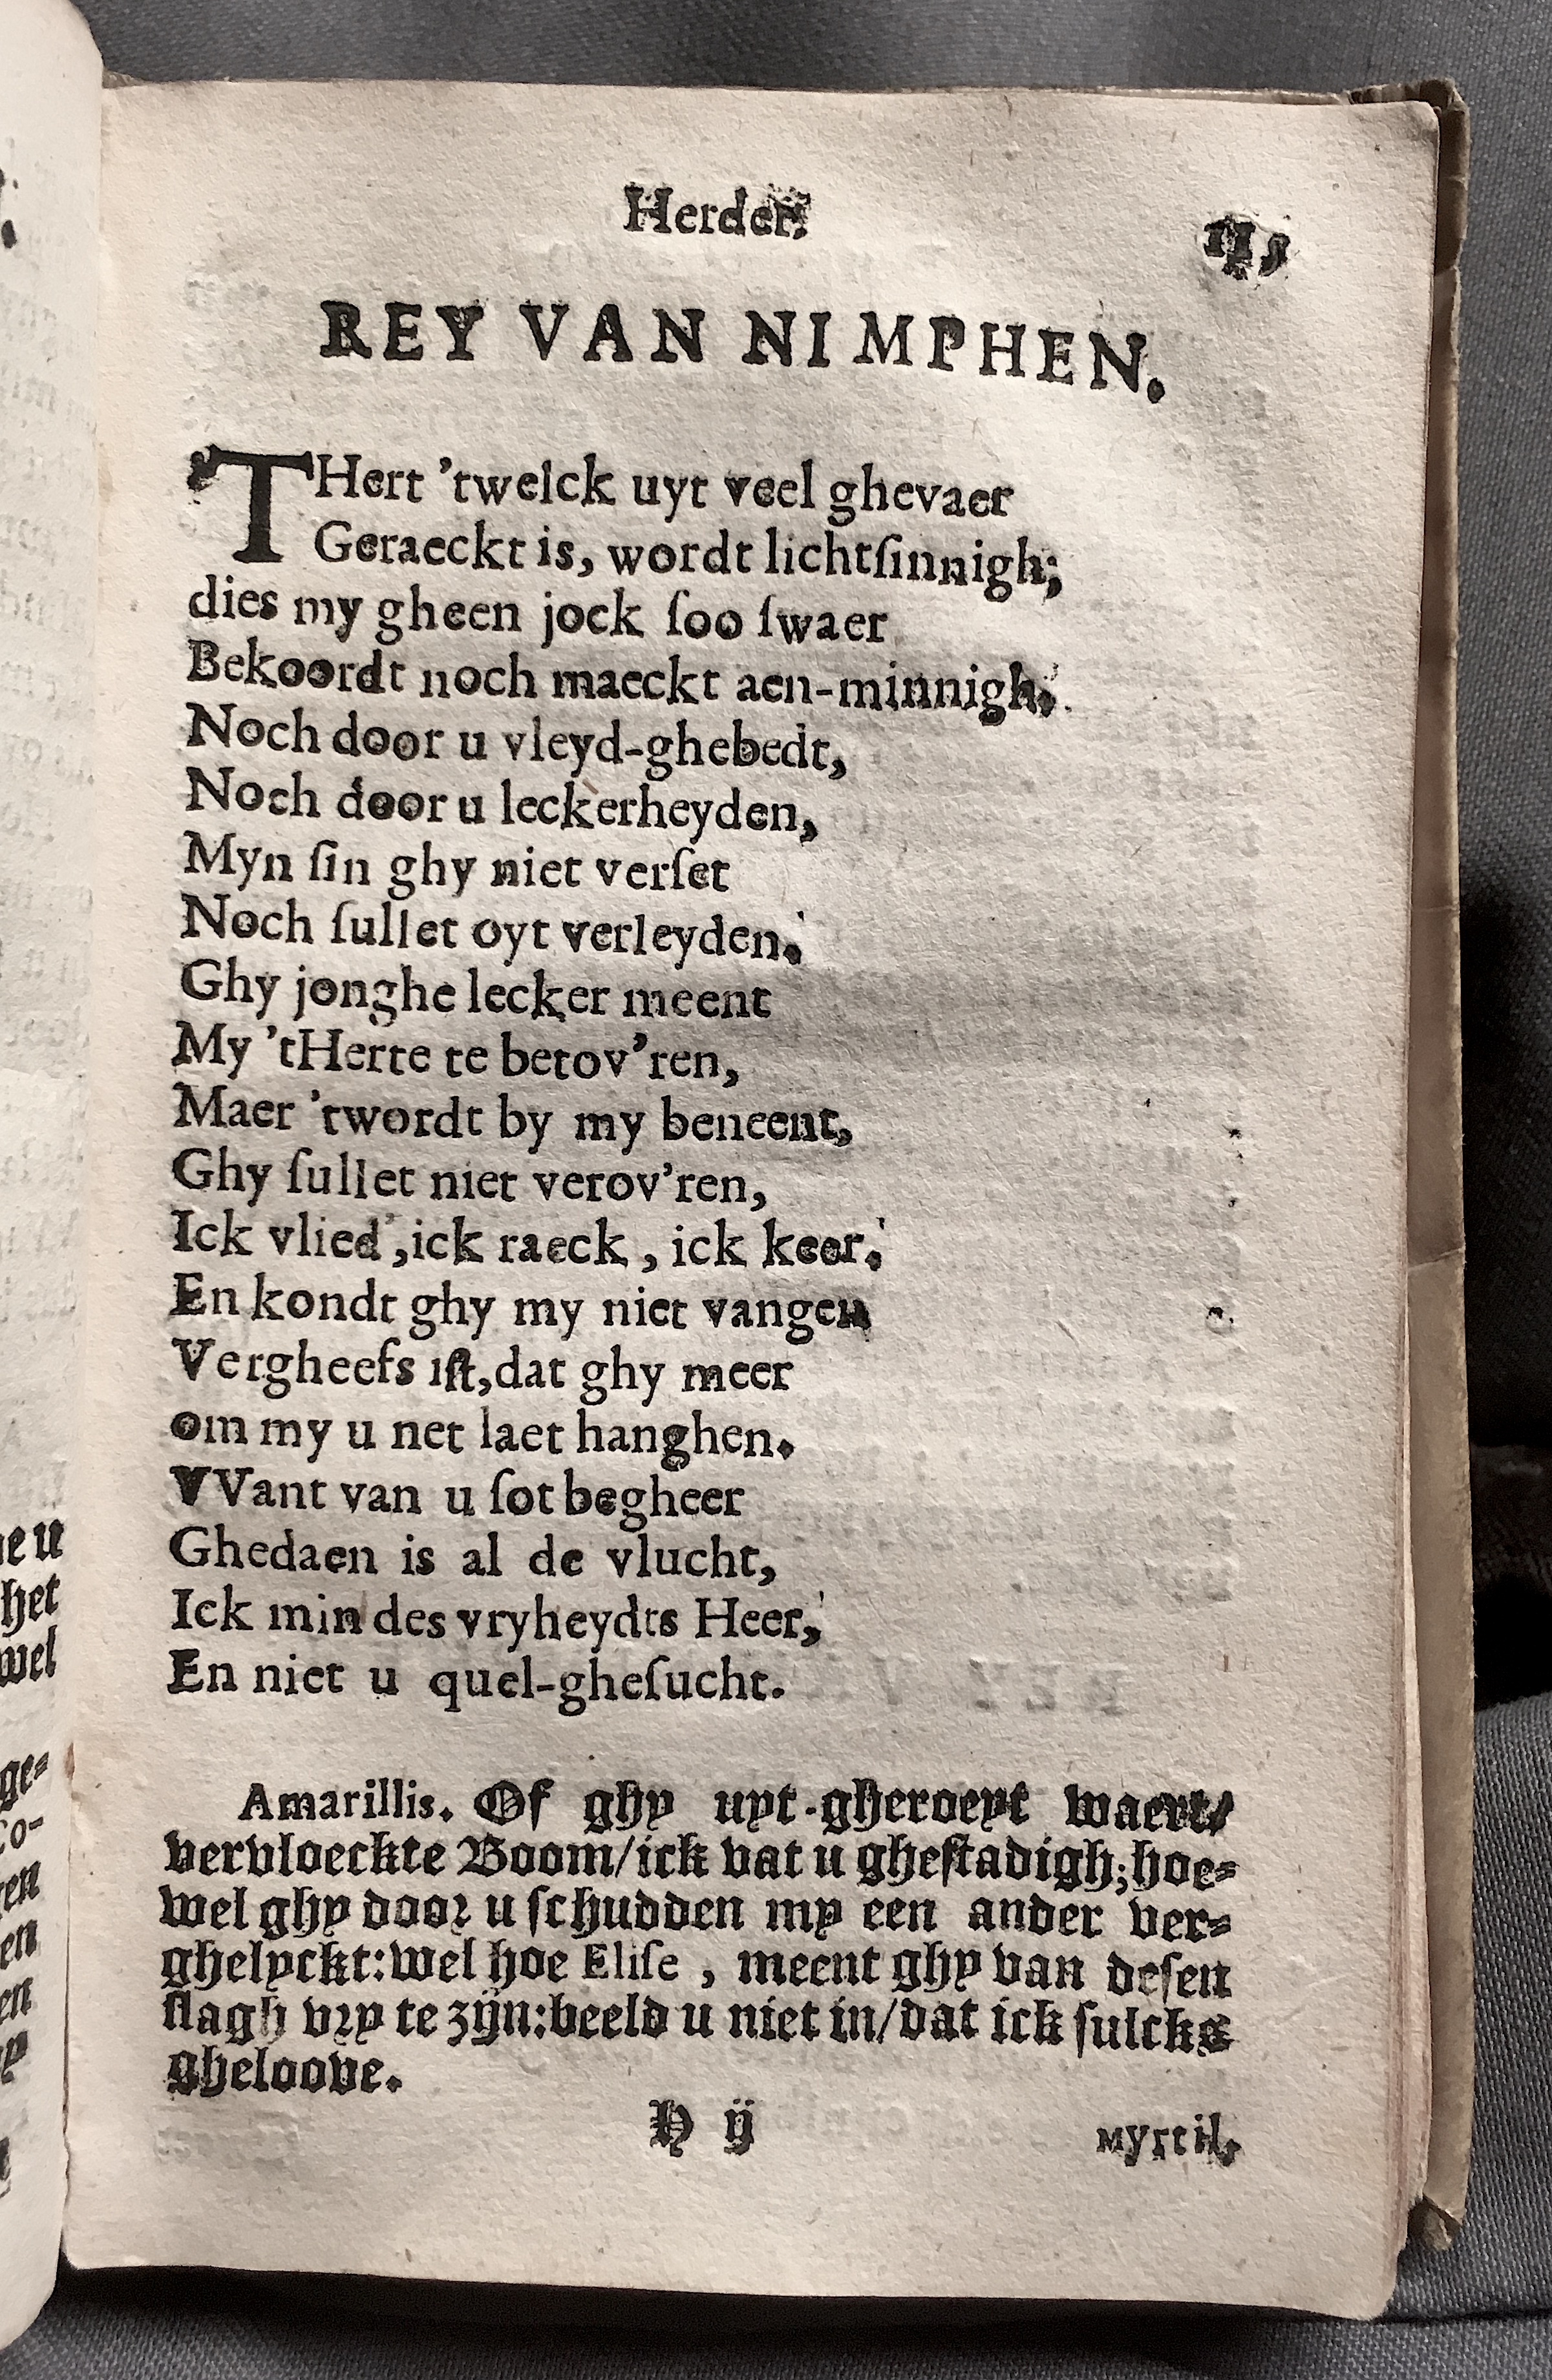 Herder.
115
REY VAN NIMPHEN.
'THert 'twelck uyt veel ghevaer
Geraeckt is, wordt lichtſinnigh;
dies my gheen jock ſoo ſwaer
Bekoordt noch maeckt aen-minnigh.
Noch door u vleyd-ghebedt,
Noch door u leckerheyden,
Myn ſin ghy niet verſet
Noch ſullet oyt verleyden.
Ghy jonghe lecker meent
My 'tHerte te betov'ren,
Maer 'twordt by my beneent,
Ghy ſullet niet verov'ren,
Ick vlied', ick raeck, ick keer.
En kondt ghy my niet vangen
Vergheefs iſt, dat ghy meer
om my u net laet hanghen.
VVant van u ſot begheer
Ghedaen is al de vlucht,
Ick min des vryheydts Heer,
En niet u quel-gheſucht.
Amarillis. Of ghy uyt-gheroeyt waert/
vervloeckte Boom/ick vat u gheſtadigh;hoe-
wel ghy door u ſchudden my een ander ver-
ghelyckt:wel hoe Eliſe, meent ghy van deſen
ſlagh vry te zijn:beeld u niet in/dat ick ſulcks
gheloove.
H ij
Myrtil.
ne u
het
wel
ge-
co-
en
en